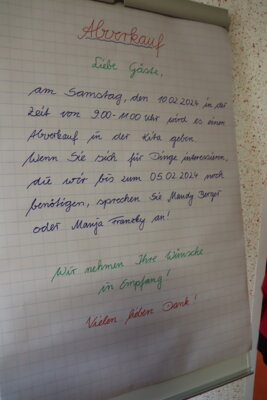 Abverkauf
Liebe Gäste,
am Samstag, den 10.02.2024 in der
Zeit von 9:00-11:00 Uhr wird es einen
Abverkauf in der Kita geben.
Wenn Sie sich für Dinge interessieren,
die wir bis zum 05.02.2024 noch
benötigen, sprechen Sie Mandy Berger
oder Manja Franzky an!
Wir nehmen Ihre Wünsche
in Empfang!
Vielen lieben Dank!